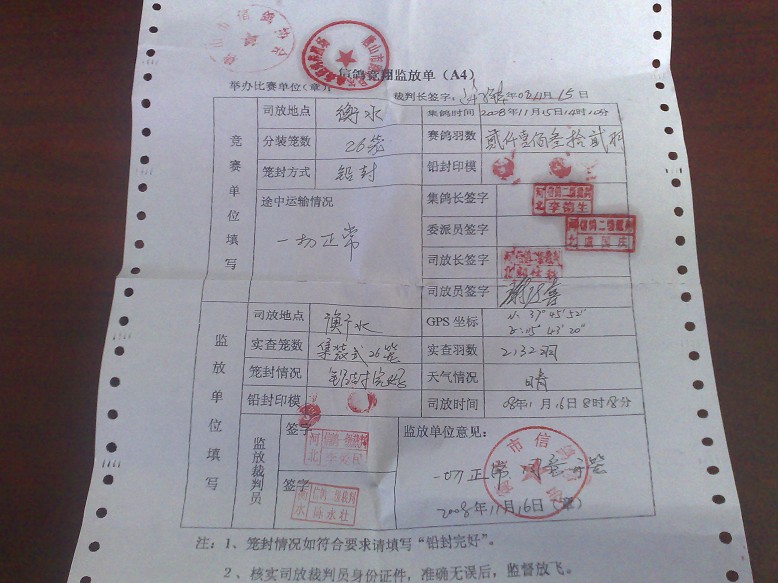 信鸽竞翔监放单（A4）
举办比赛单位（章）
裁判长签字： 年 11月15日
竞赛单位填写
司放地点 衡水 集鸽时间 2008年11月15日14时10分
分装笼数 26笼 赛鸽羽数 贰仟壹佰叁拾贰羽
笼封方式 铅封 铅封印模
途中运输情况 集鸽长签字
一切正常 委派员签字
司放长签字
司放员签字
河北 信鸽二级裁判
监放单位填写
司放地点 衡水 GPS 坐标 N: 37°45′52″
E:115°43′20″
实查笼数 集装式26笼 实查羽数 2132羽
笼封情况 铅封完好 天气情况 晴
铅封印模 司放时间 08年11月16日8时18分
监放裁判员
签字 河北 信鸽一级裁判 李爱民
签字 衡水 信鸽二级裁判 陈永壮
监放单位意见：
一切正常 同意开笼
市信鸽
2008年11月16日（章）
注：1、笼封情况如符合要求请填写“铅封完好”。
2、核实司放裁判员身份证件，准确无误后，监督放飞。